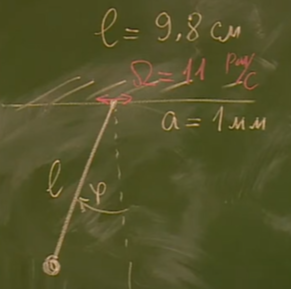 l = 9,8 см
Ω = 11 рад/с
a = 1 мм
l
φ